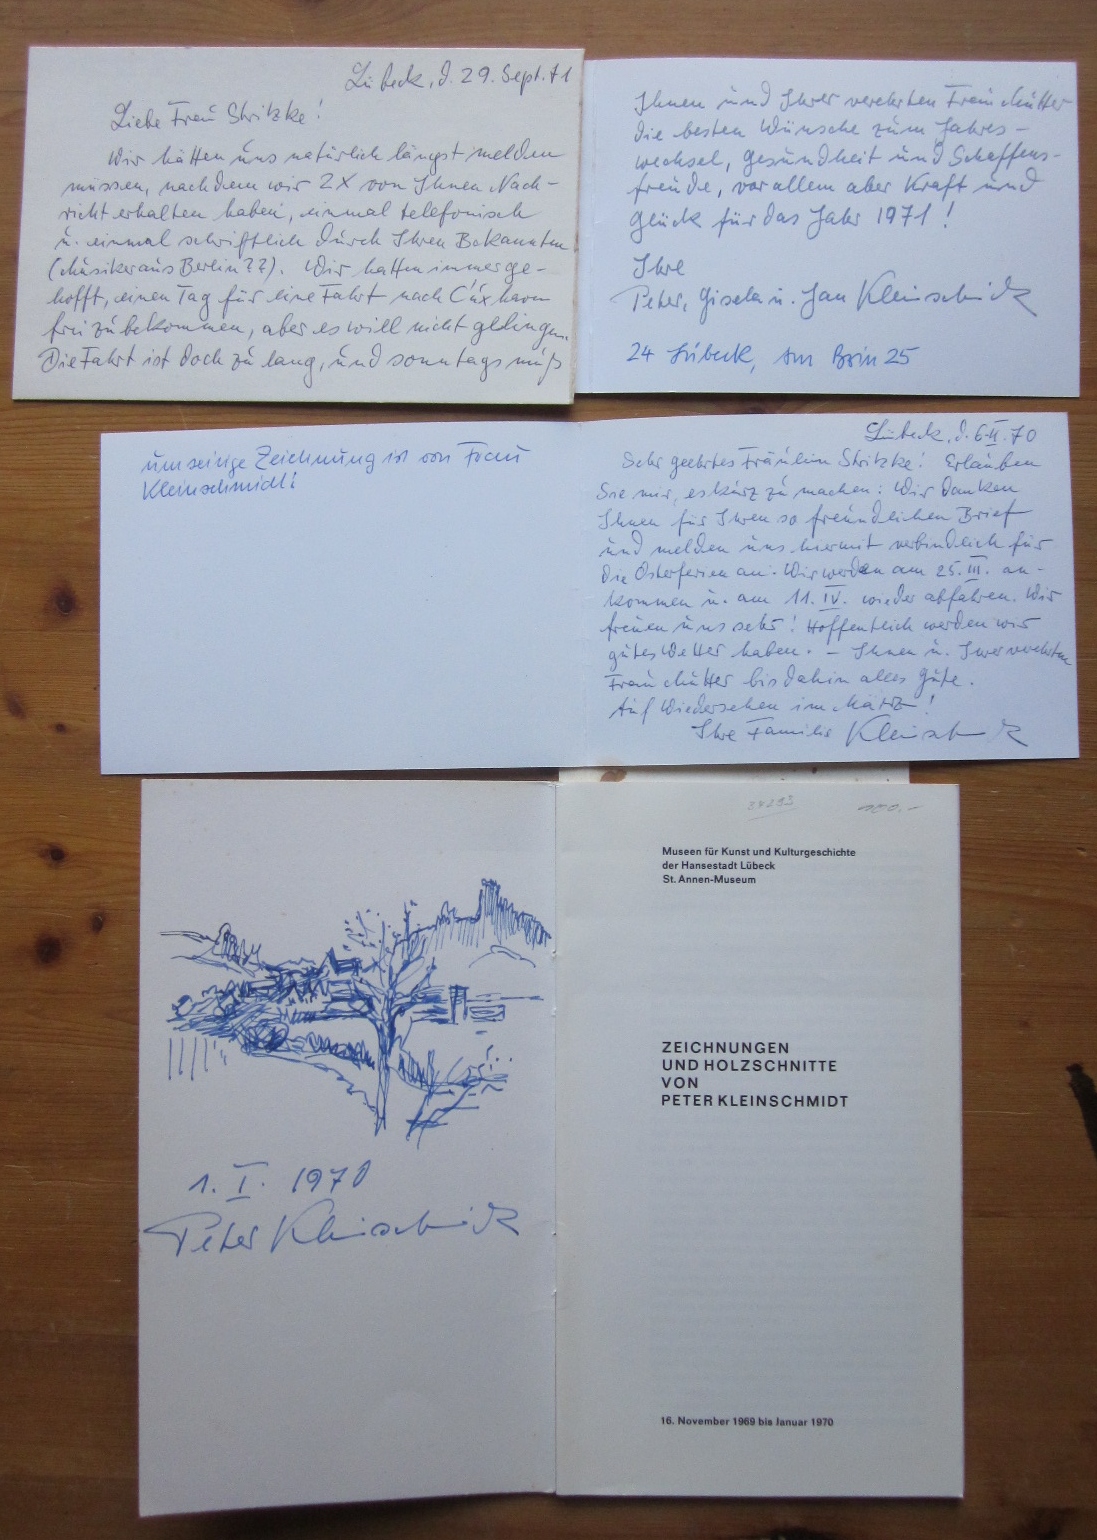 Lübeck, d. 29. Sept. 71
Liebe Frau Stritzke!
Wir hätten uns natürlich längst melden
müssen, nachdem wir 2x von Ihnen Nach-
richt erhalten haben, einmal telefonisch
u. einmal schriftlich durch Ihren Bekannten
(Musiker aus Berlin??). Wir hatten immer ge-
hofft, einen Tag für eine Fahrt nach Cuxhaven
frei zu bekommen, aber es will nicht gelingen.
Die Fahrt ist doch zu lang, und sonntags muß
Ihnen und Ihrer verehrten Frau Mutter
die besten Wünsche zum Jahres-
wechsel, Gesundheit und Schaffens-
freude, vor allem aber Kraft und
Glück für das Jahr 1971!
Ihre
Peter, Gisela u. Jan Kleinschmidt
24 Lübeck, Am Brin 25
umseitige Zeichnung ist von Frau
Kleinschmidt!
Lübeck, d. 6-II-70
Sehr geehrtes Fräulein Stritzke! Erlauben
Sie mir, es kurz zu machen: Wir danken
Ihnen für Ihren so freundlichen Brief
und melden uns hiermit verbindlich für
die Osterferien an. Wir werden am 25. III. an-
kommen u. am 11. IV. wieder abfahren. Wir
freuen uns sehr! Hoffentlich werden wir
gutes Wetter haben. – Ihnen u. Ihrer verehrten
Frau Mutter bis dahin alles Gute.
Auf Wiedersehen im März!
Ihre Familie Kleinschmidt
100.-
Museen für Kunst und Kulturgeschichte
der Hansestadt Lübeck
St. Annen-Museum
ZEICHNUNGEN
UND HOLZSCHNITTE
VON
PETER KLEINSCHMIDT
16. November 1969 bis Januar 1970
1. I. 1970
Peter Kleinschmidt